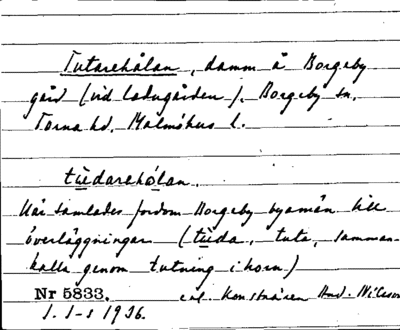 Tutarehålan, damm å Borgeby
gård (vid ladugården). Borgeby sn,
Torna hd, Malmöhus l.
tüdarehólan.
Här samlades fordom Borgeby byamän till
överläggningar (tüda, tuta, samman-
kalla genom tutning i horn)
Nr 5833. enl. konstnären And. Nilsson
1. 1-3 1936.